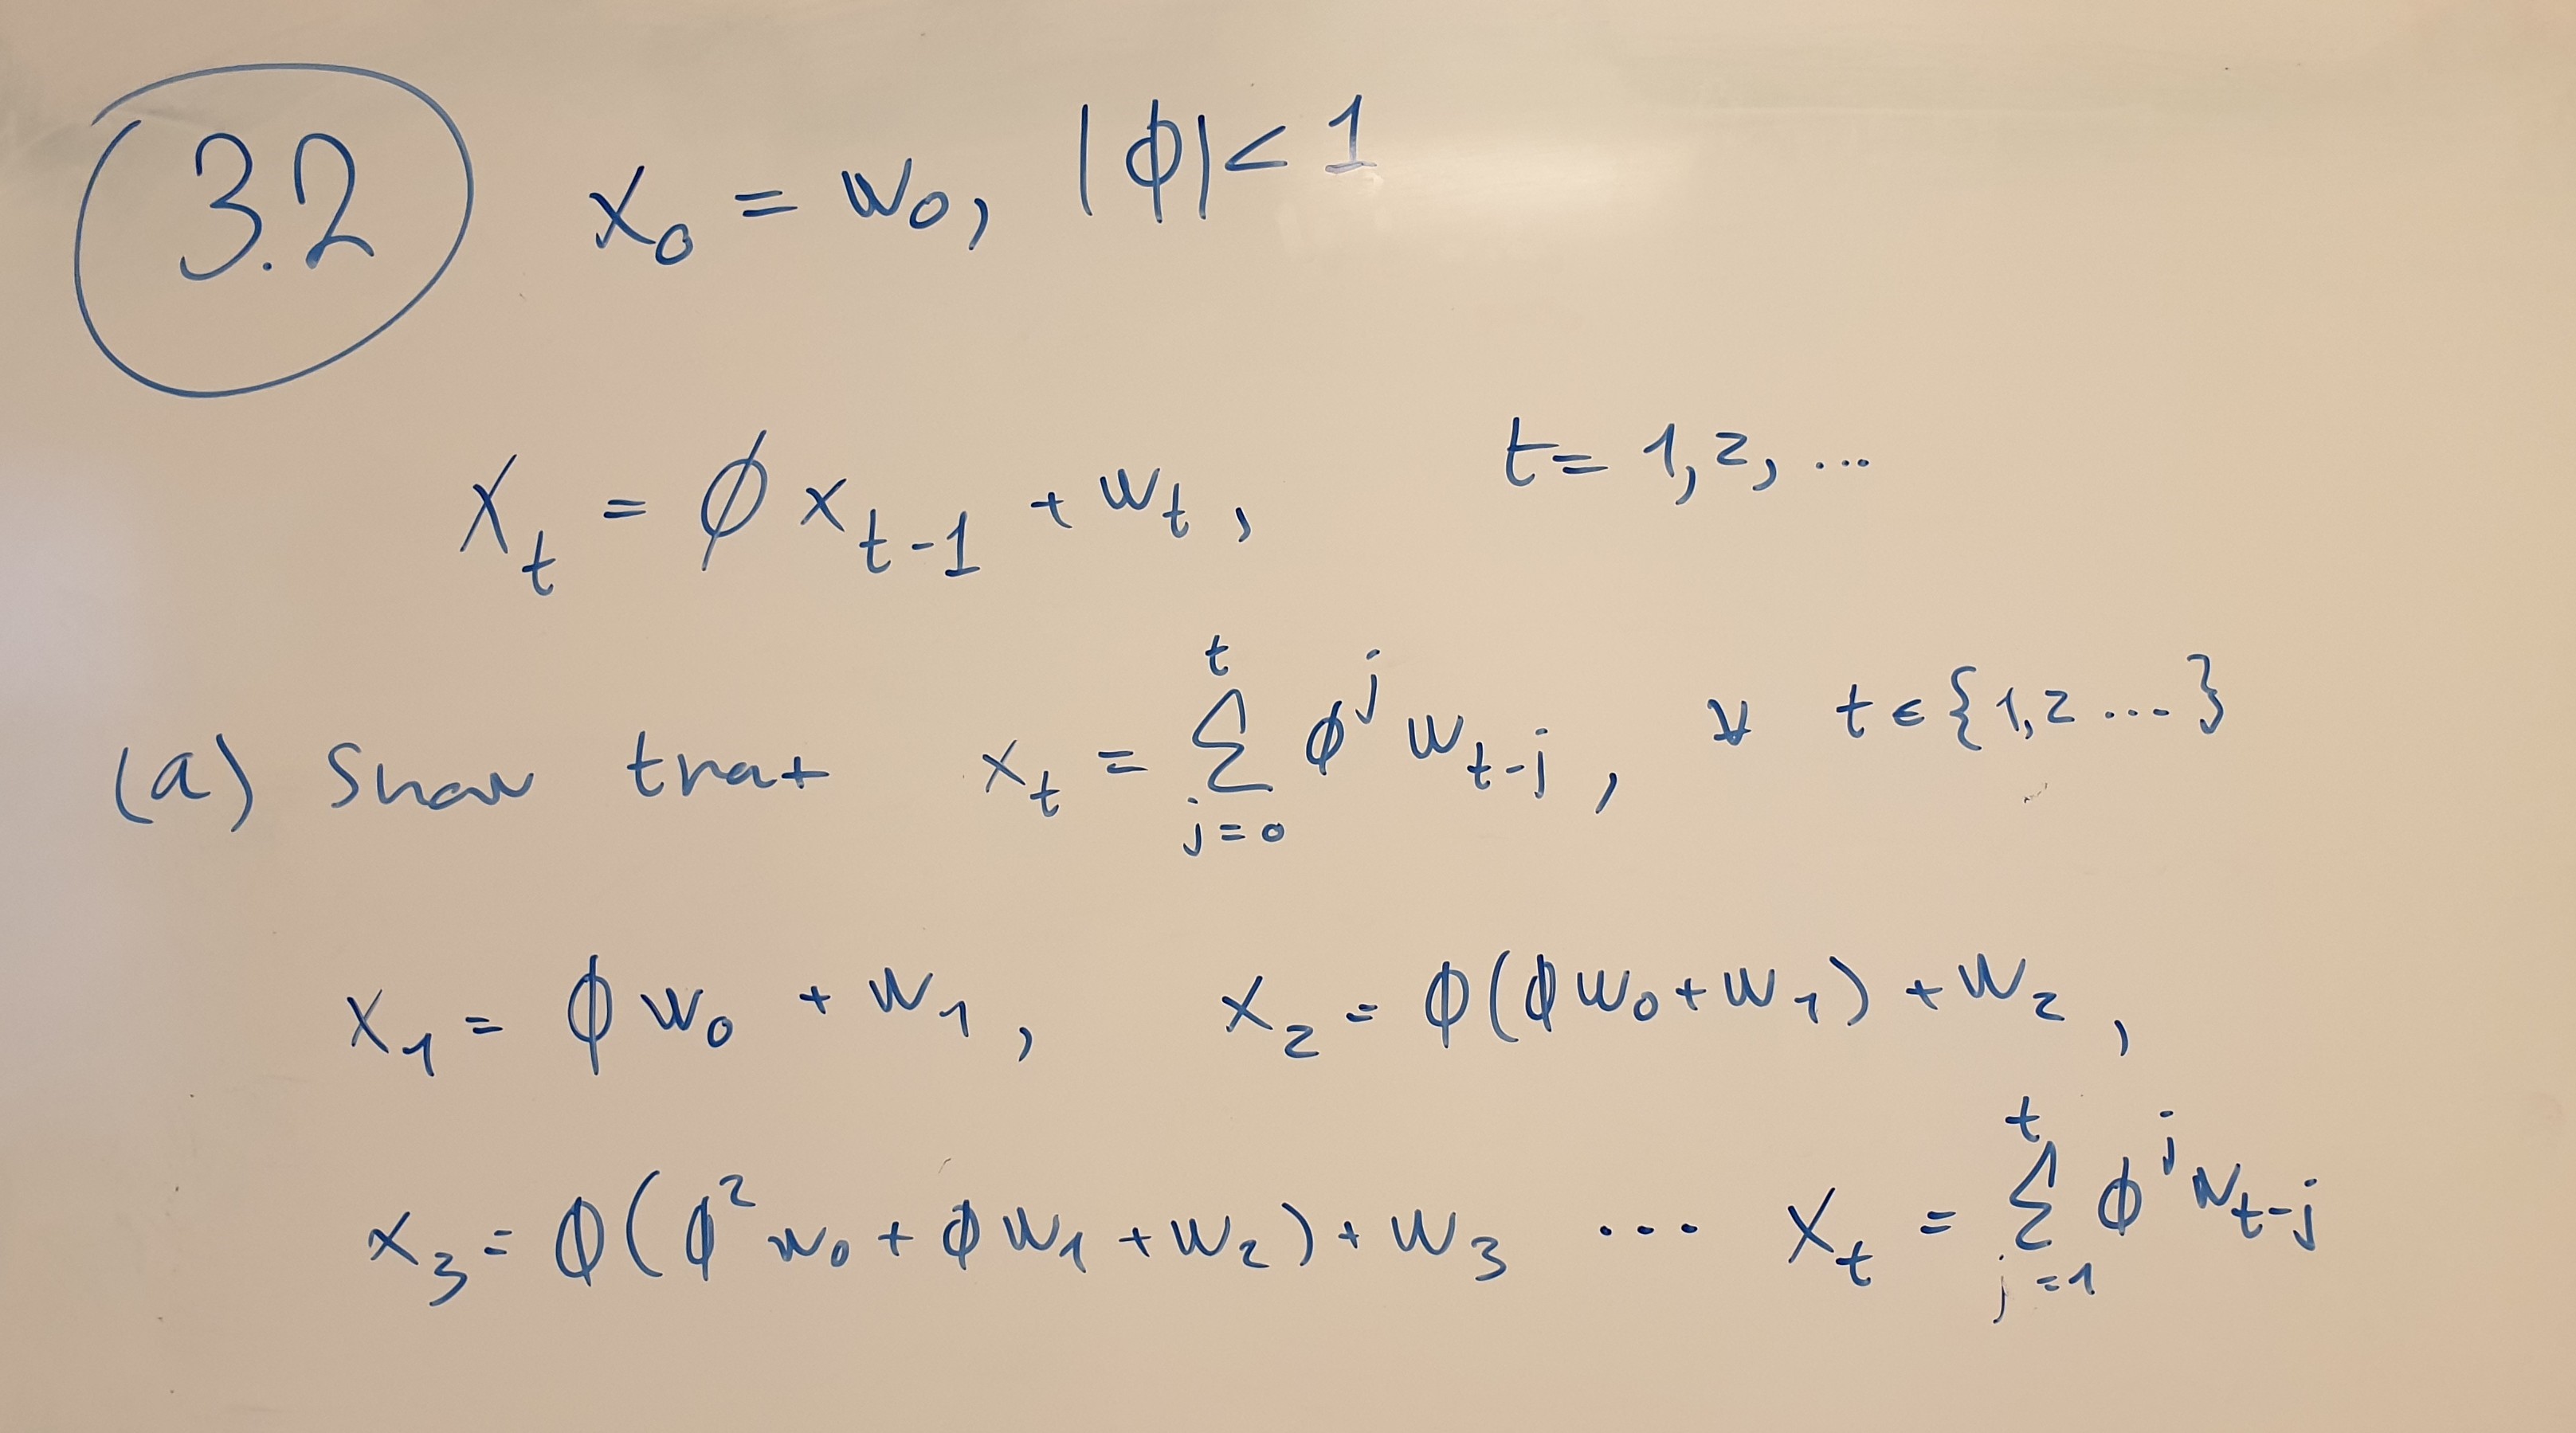 3.2 x₀ = w₀, |ϕ| < 1
x_t = ϕ x_{t-1} + w_t, t = 1, 2, ...
(a) Show that x_t = ∑_{j=0}^{t} ϕ^j w_{t-j}, ∀ t ∈ {1, 2 ...}
x₁ = ϕ w₀ + w₁, x₂ = ϕ(ϕ w₀ + w₁) + w₂,
x₃ = ϕ(ϕ² w₀ + ϕ w₁ + w₂) + w₃ ... x_t = ∑_{j=1}^{t} ϕ^j w_{t-j}